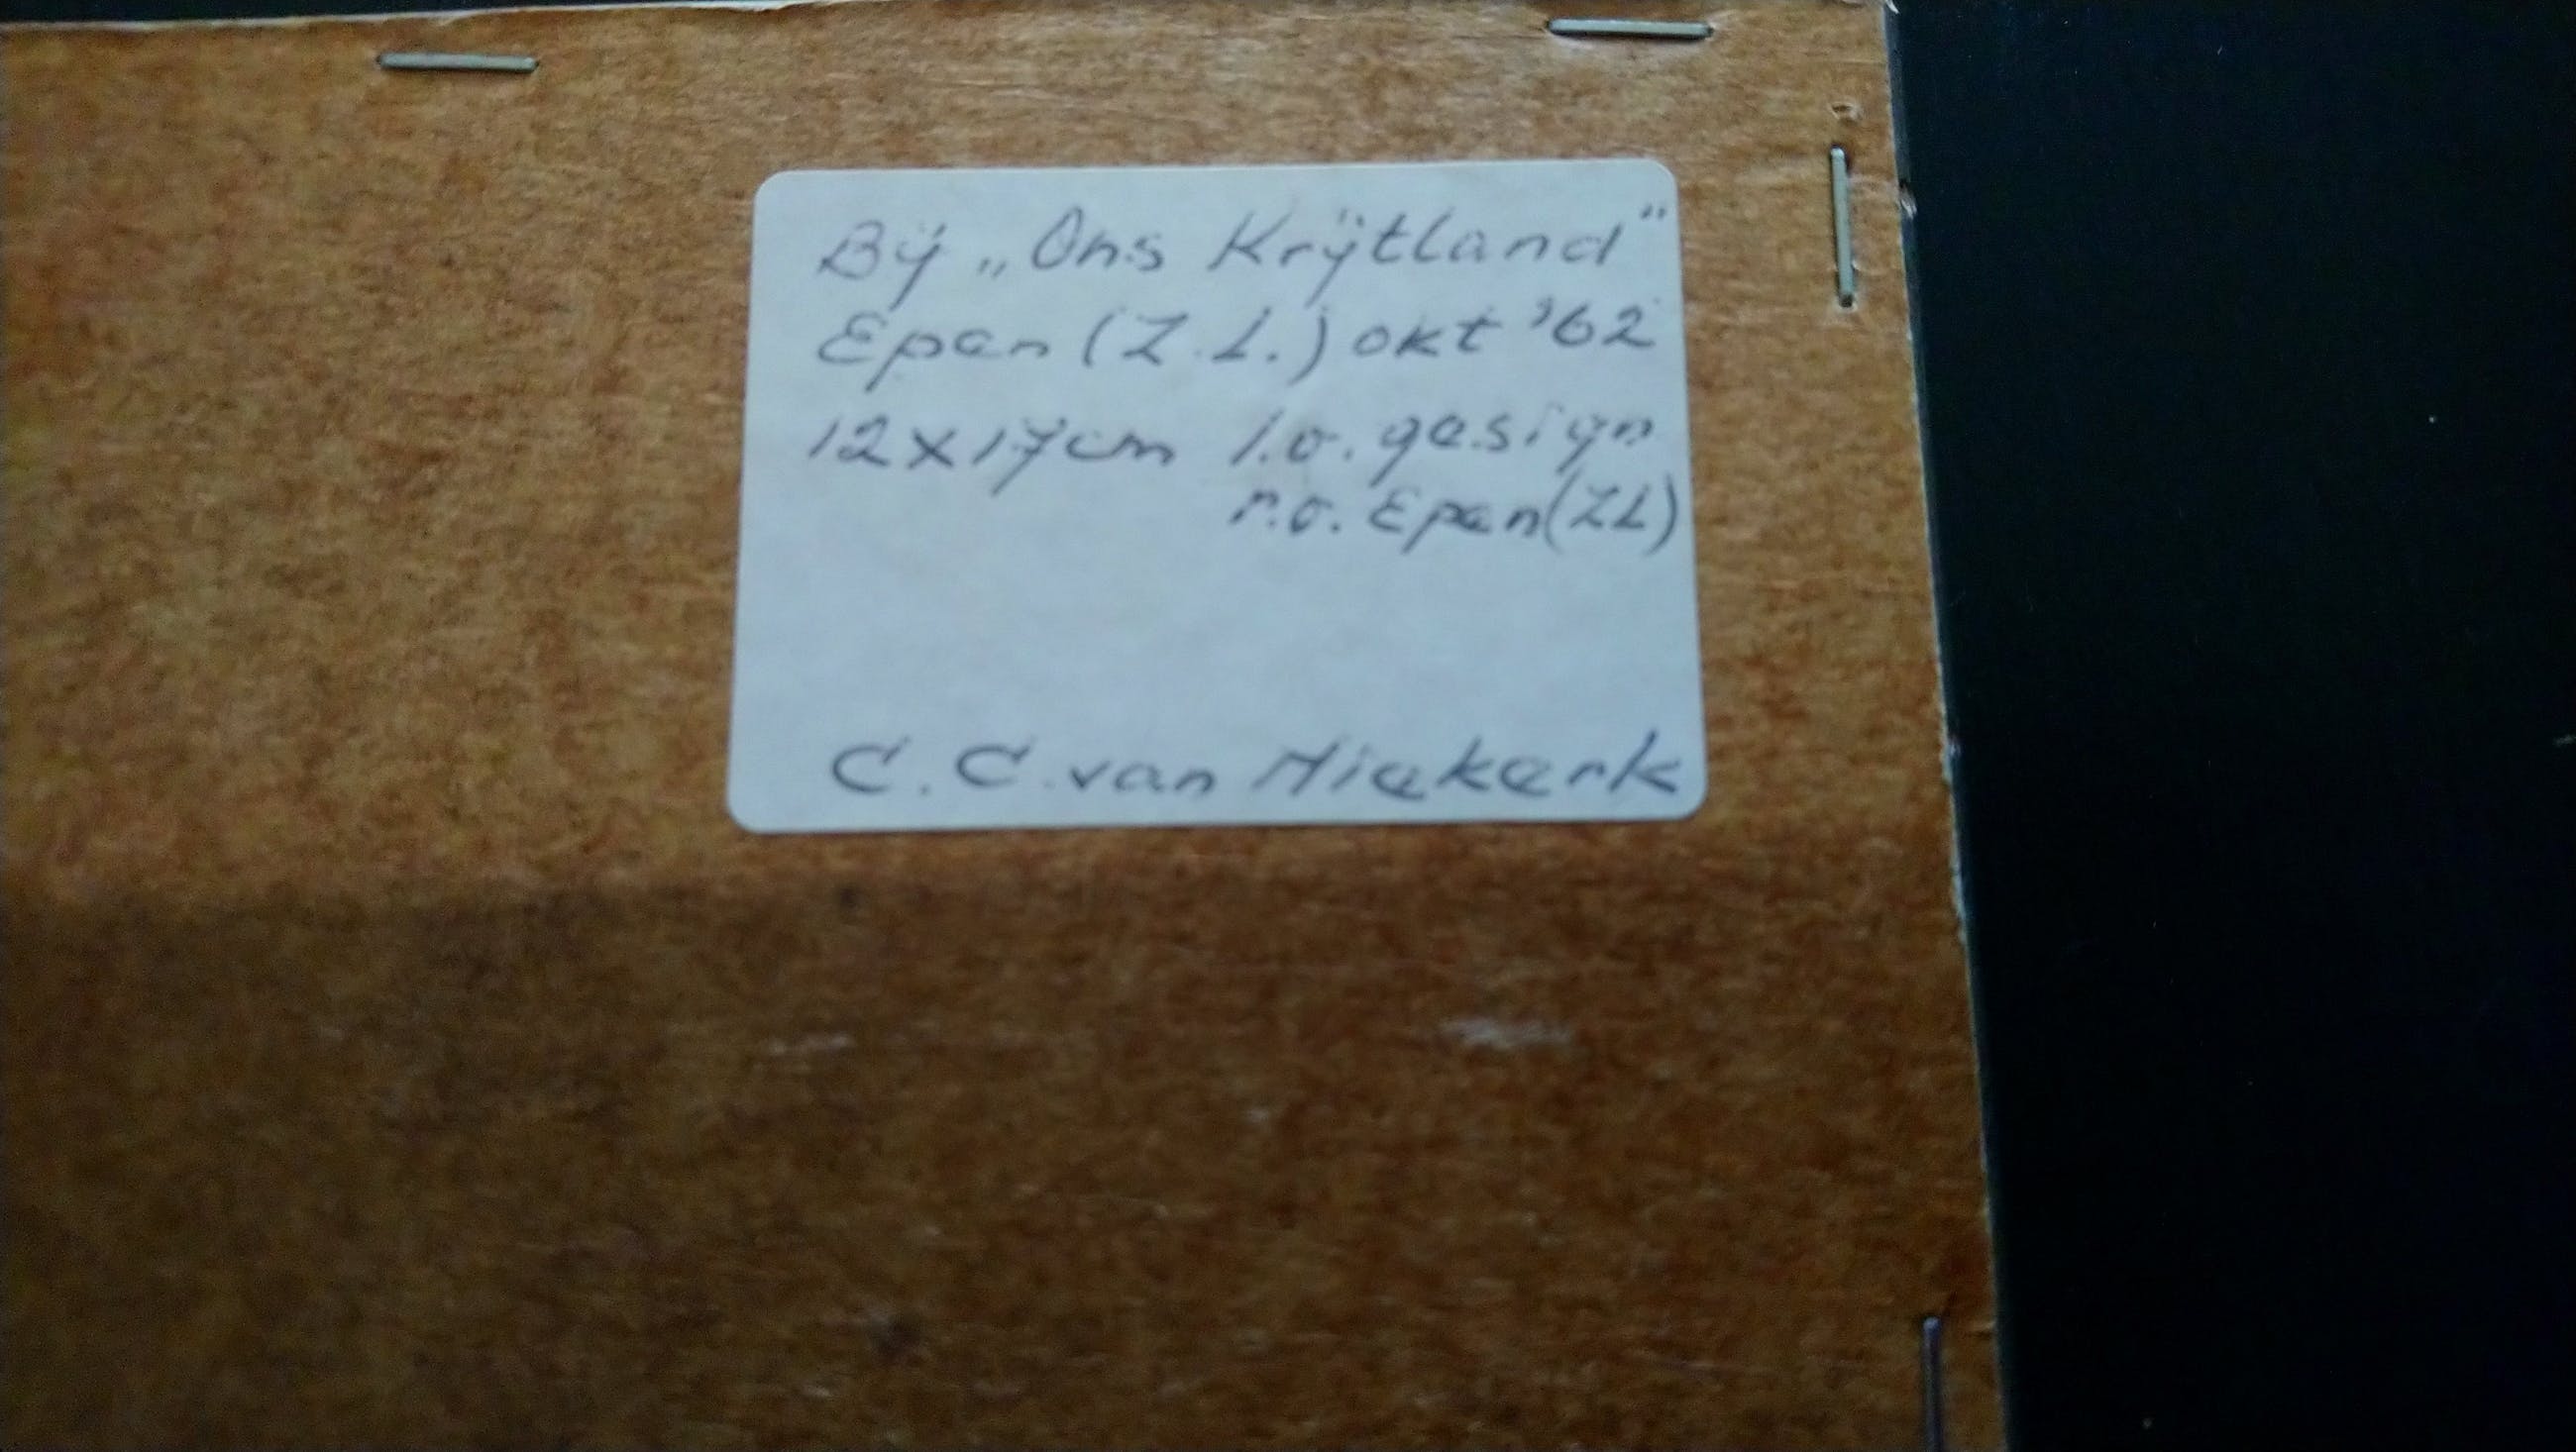 Bÿ „Ons Krÿtland"
Epen (Z.L.) okt '62
12x17cm l.o. gesign
r.o. Epen (ZL)
C. C. van Niekerk